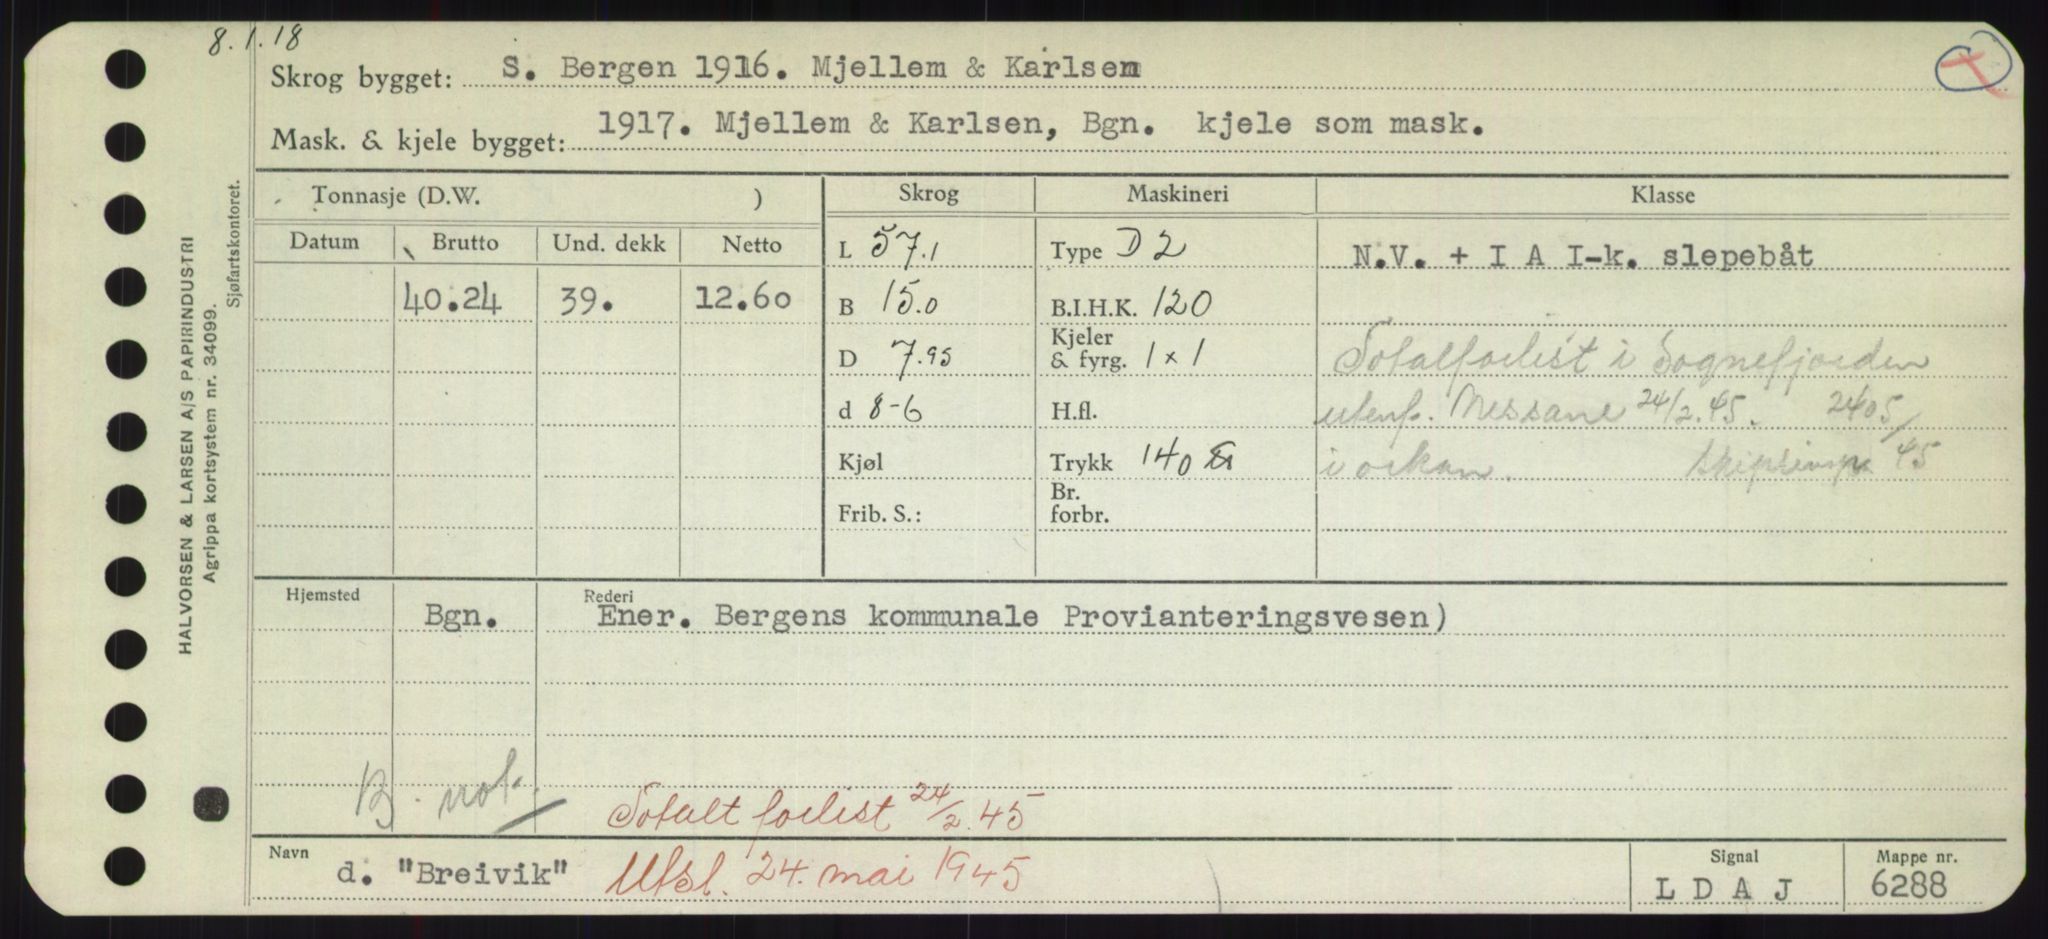 8.1.18
Skrog bygget: S. Bergen 1916. Mjellem & Karlsen
Mask. & kjele bygget: 1917. Mjellem & Karlsen, Bgn. kjele som mask.
HALVORSEN & LARSEN A/S PAPIRINDUSTRI
Agrippa kortsystem nr. 34099.
Sjøfartskontoret.
Tonnasje (D.W. ) Skrog Maskineri Klasse
Datum Brutto Und. dekk Netto
L 57.1 Type D 2 N.V. + I A I-k. slepebåt
40.24 39. 12.60 B 15.0 B.I.H.K. 120
D 7.95 Kjeler & fyrg. 1 x 1 Totalforlist i Sognefjorden
d 8-6 H.fl. utenf. Nessane 24/2.45. 2405/45
Kjøl Trykk 140 i orkan. Skipsinsp.
Frib. S.: Br. forbr.
Hjemsted Rederi
Bgn. Ener. Bergens kommunale Provianteringsvesen)
B. not. Totalt forlist 24/2.45
Navn Signal Mappe nr.
d. "Breivik" Utsl. 24. mai 1945 L D A J 6288